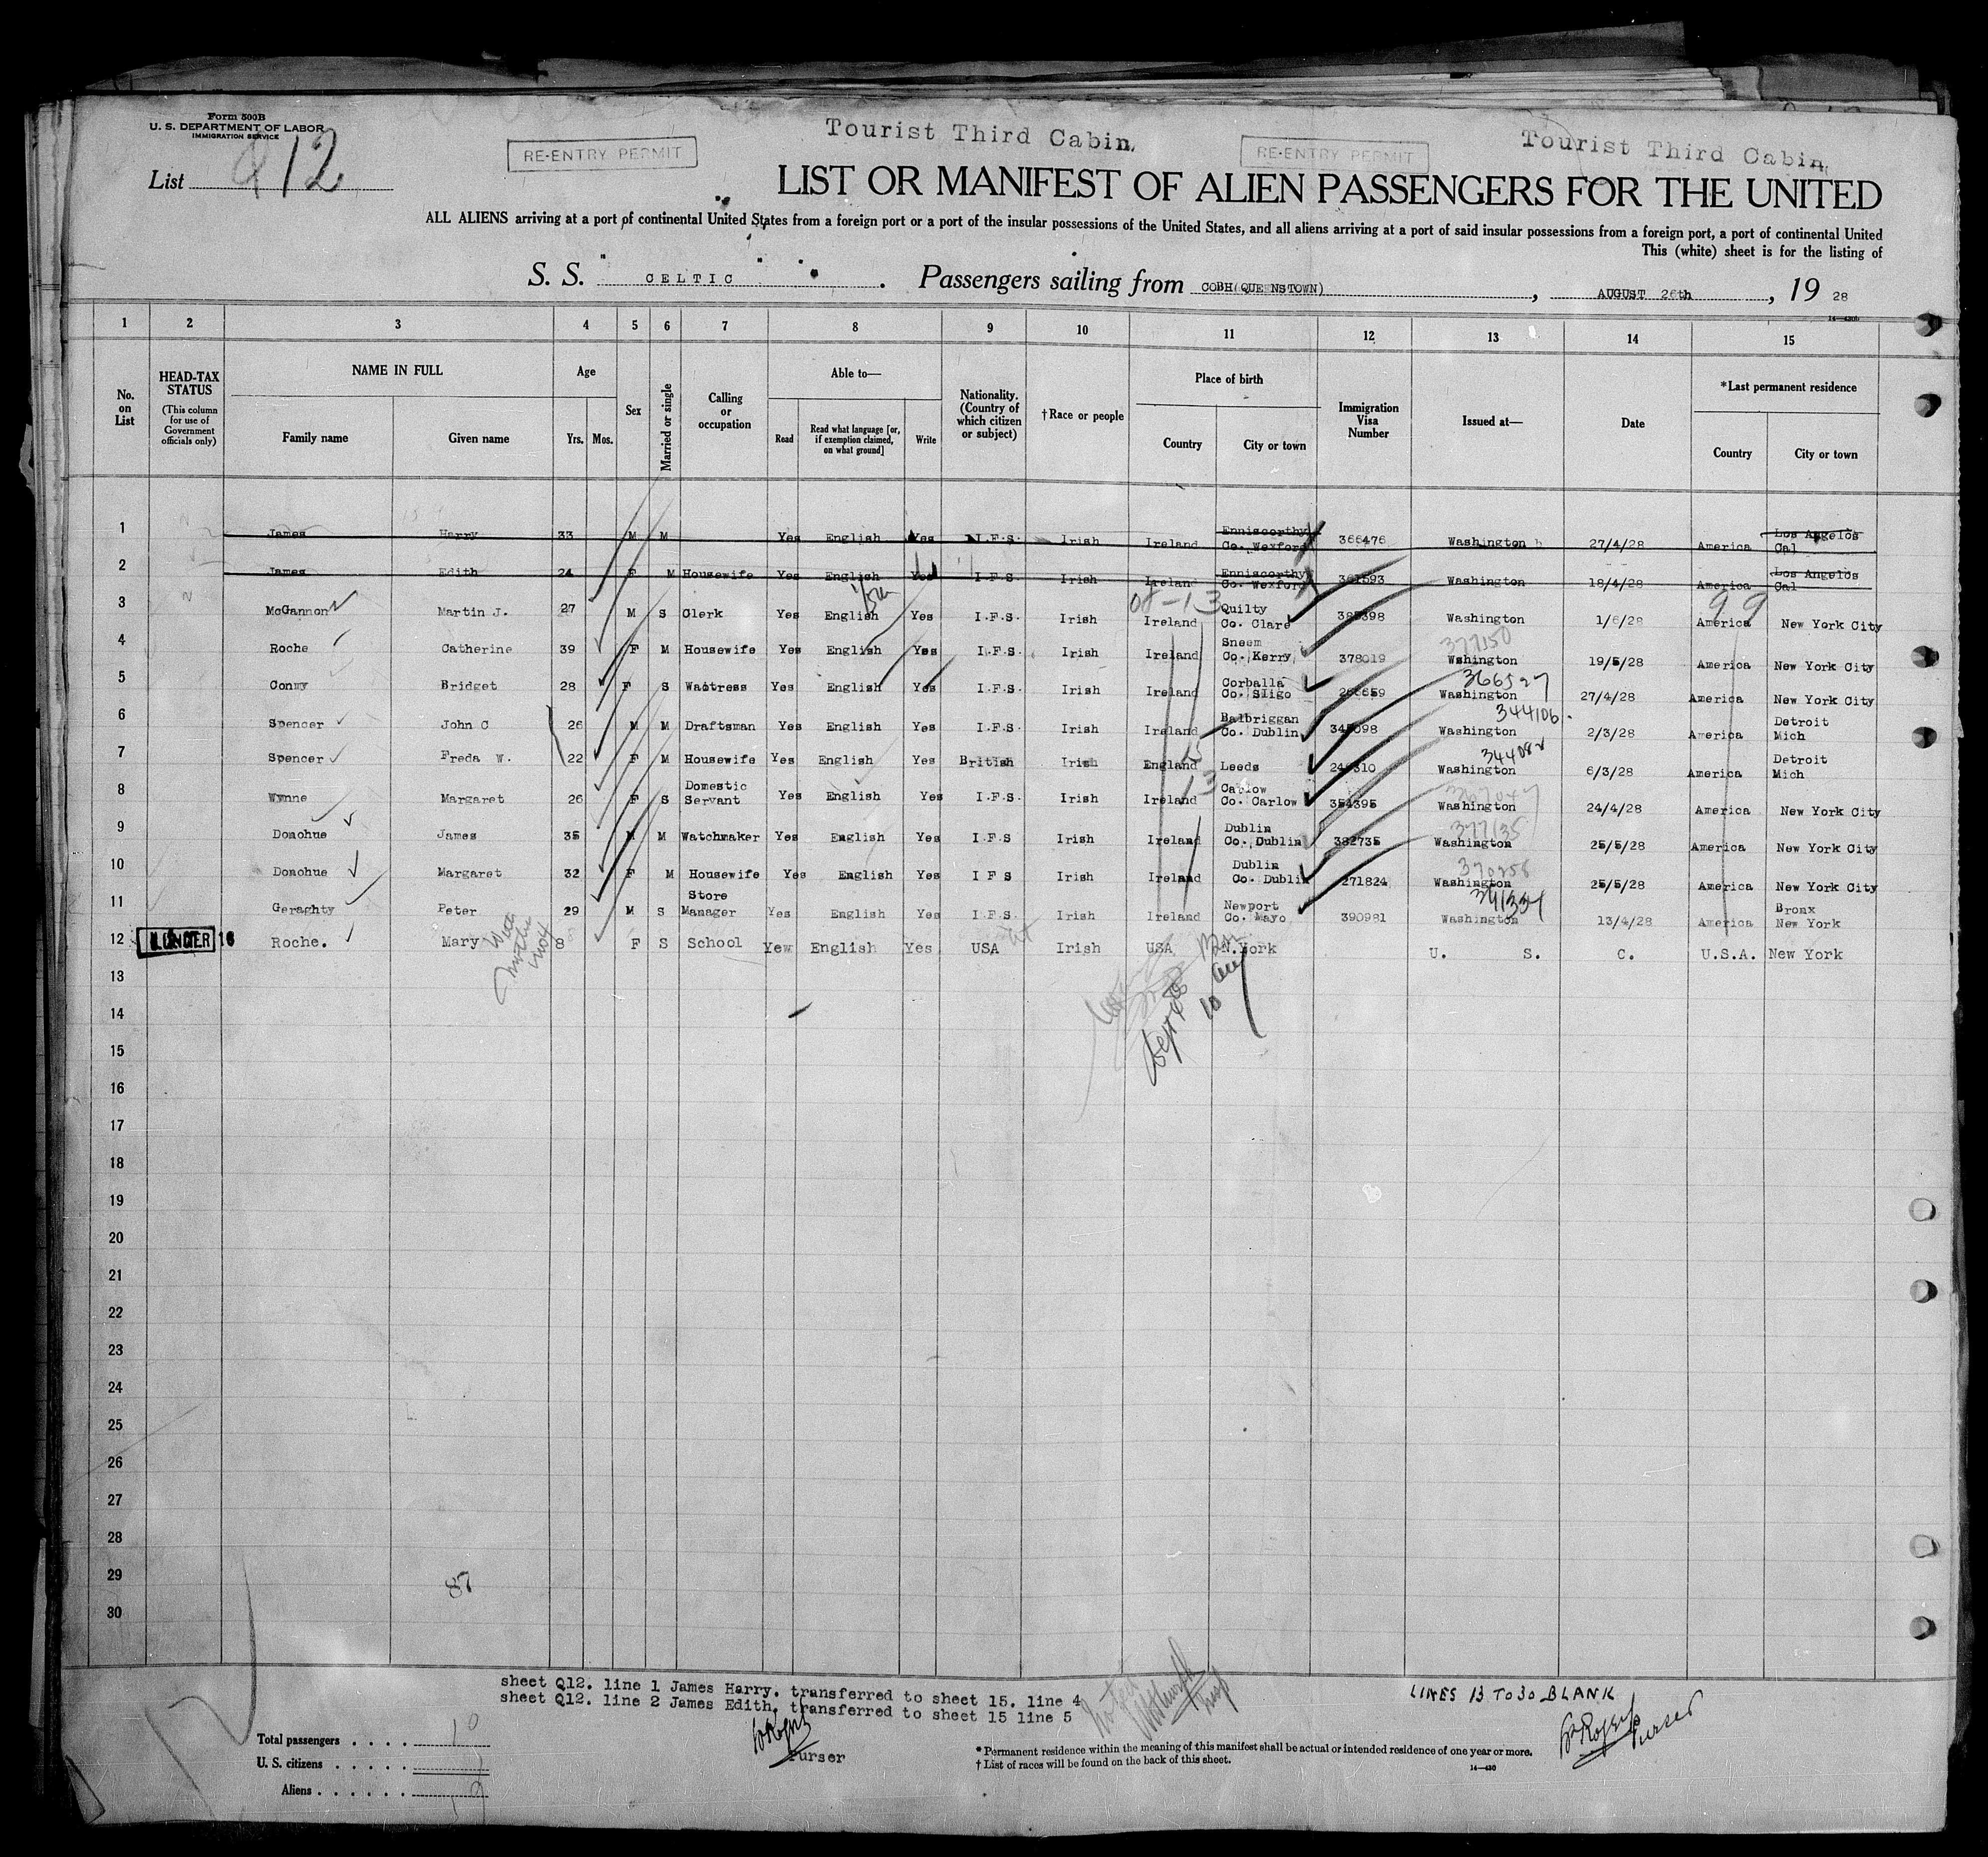 Form 500B
U. S. DEPARTMENT OF LABOR
IMMIGRATION SERVICE
List Q 12
RE-ENTRY PERMIT
Tourist Third Cabin
RE-ENTRY PERMIT
Tourist Third Cabin
LIST OR MANIFEST OF ALIEN PASSENGERS FOR THE UNITED
ALL ALIENS arriving at a port of continental United States from a foreign port or a port of the insular possessions of the United States, and all aliens arriving at a port of said insular possessions from a foreign port, a port of continental United
This (white) sheet is for the listing of
S. S. " CELTIC " . Passengers sailing from COBH(QUEENSTOWN) , AUGUST 26th , 19 28
14—430b
1 2 3 4 5 6 7 8 9 10 11 12 13 14 15
No. on List
HEAD-TAX STATUS
(This column for use of Government officials only)
NAME IN FULL
Family name Given name
Age
Yrs. Mos.
Sex
Married or single
Calling or occupation
Able to—
Read
Read what language [or, if exemption claimed, on what ground]
Write
Nationality. (Country of which citizen or subject)
†Race or people
Place of birth
Country City or town
Immigration Visa Number
Issued at—
Date
*Last permanent residence
Country City or town
1 James Harry 33 M M Yes English Yes I.F.S. Irish Ireland Enniscorthy Co. Wexford 366476 Washington 27/4/28 America Los Angelos Cal
2 James Edith 24 F M Housewife Yes English Yes I.F.S. Irish Ireland Enniscorthy Co. Wexford 361593 Washington 18/4/28 America Los Angelos Cal
3 McGannon Martin J. 27 M S Clerk Yes English Yes I.F.S. Irish Ireland Quilty Co. Clare 385398 Washington 1/6/28 America New York City
4 Roche Catherine 39 F M Housewife Yes English Yes I.F.S. Irish Ireland Sneem Co. Kerry 378019 377150 Wshington 19/5/28 America New York City
5 Conmy Bridget 28 F S Waitress Yes English Yes I.F.S. Irish Ireland Corballa Co. Sligo 266659 366527 Washington 27/4/28 America New York City
6 Spencer John C 26 M M Draftsman Yes English Yes I.F.S. Irish Ireland Balbriggan Co. Dublin 345098 344106 Washington 2/3/28 America Detroit Mich
7 Spencer Freda W. 22 F M Housewife Yes English Yes British Irish England Leeds 246310 Washington 6/3/28 America Detroit Mich
8 Wynne Margaret 26 F S Domestic Servant Yes English Yes I.F.S. Irish Ireland Carlow Co. Carlow 354395 Washington 24/4/28 America New York City
9 Donohue James 35 M M Watchmaker Yes English Yes I.F.S Irish Ireland Dublin Co. Dublin 382735 377135 Washington 25/5/28 America New York City
10 Donohue Margaret 32 F M Housewife Yes English Yes I F S Irish Ireland Dublin Co. Dublin 271824 Washington 25/5/28 America New York City
11 Geraghty Peter 29 M S Store Manager Yes English Yes I.F.S. Irish Ireland Newport Co. Mayo 390981 Washington 13/4/28 America Bronx New York
12 UNDER 16 Roche. Mary 8 F S School Yew English Yes USA Irish USA N.York U. S. C. U.S.A. New York
With mother
13
14
15
16
17
18
19
20
21
22
23
24
25
26
27
28
29
30
87
sheet Q12. line 1 James Harry. transferred to sheet 15. line 4
sheet Q12. line 2 James Edith, transferred to sheet 15 line 5
Purser
LINES 13 TO 30 BLANK
Purser
Total passengers . . . . 10
U. S. citizens . . . . . 1
Aliens . . . . . .
* Permanent residence within the meaning of this manifest shall be actual or intended residence of one year or more.
† List of races will be found on the back of this sheet.
14—430